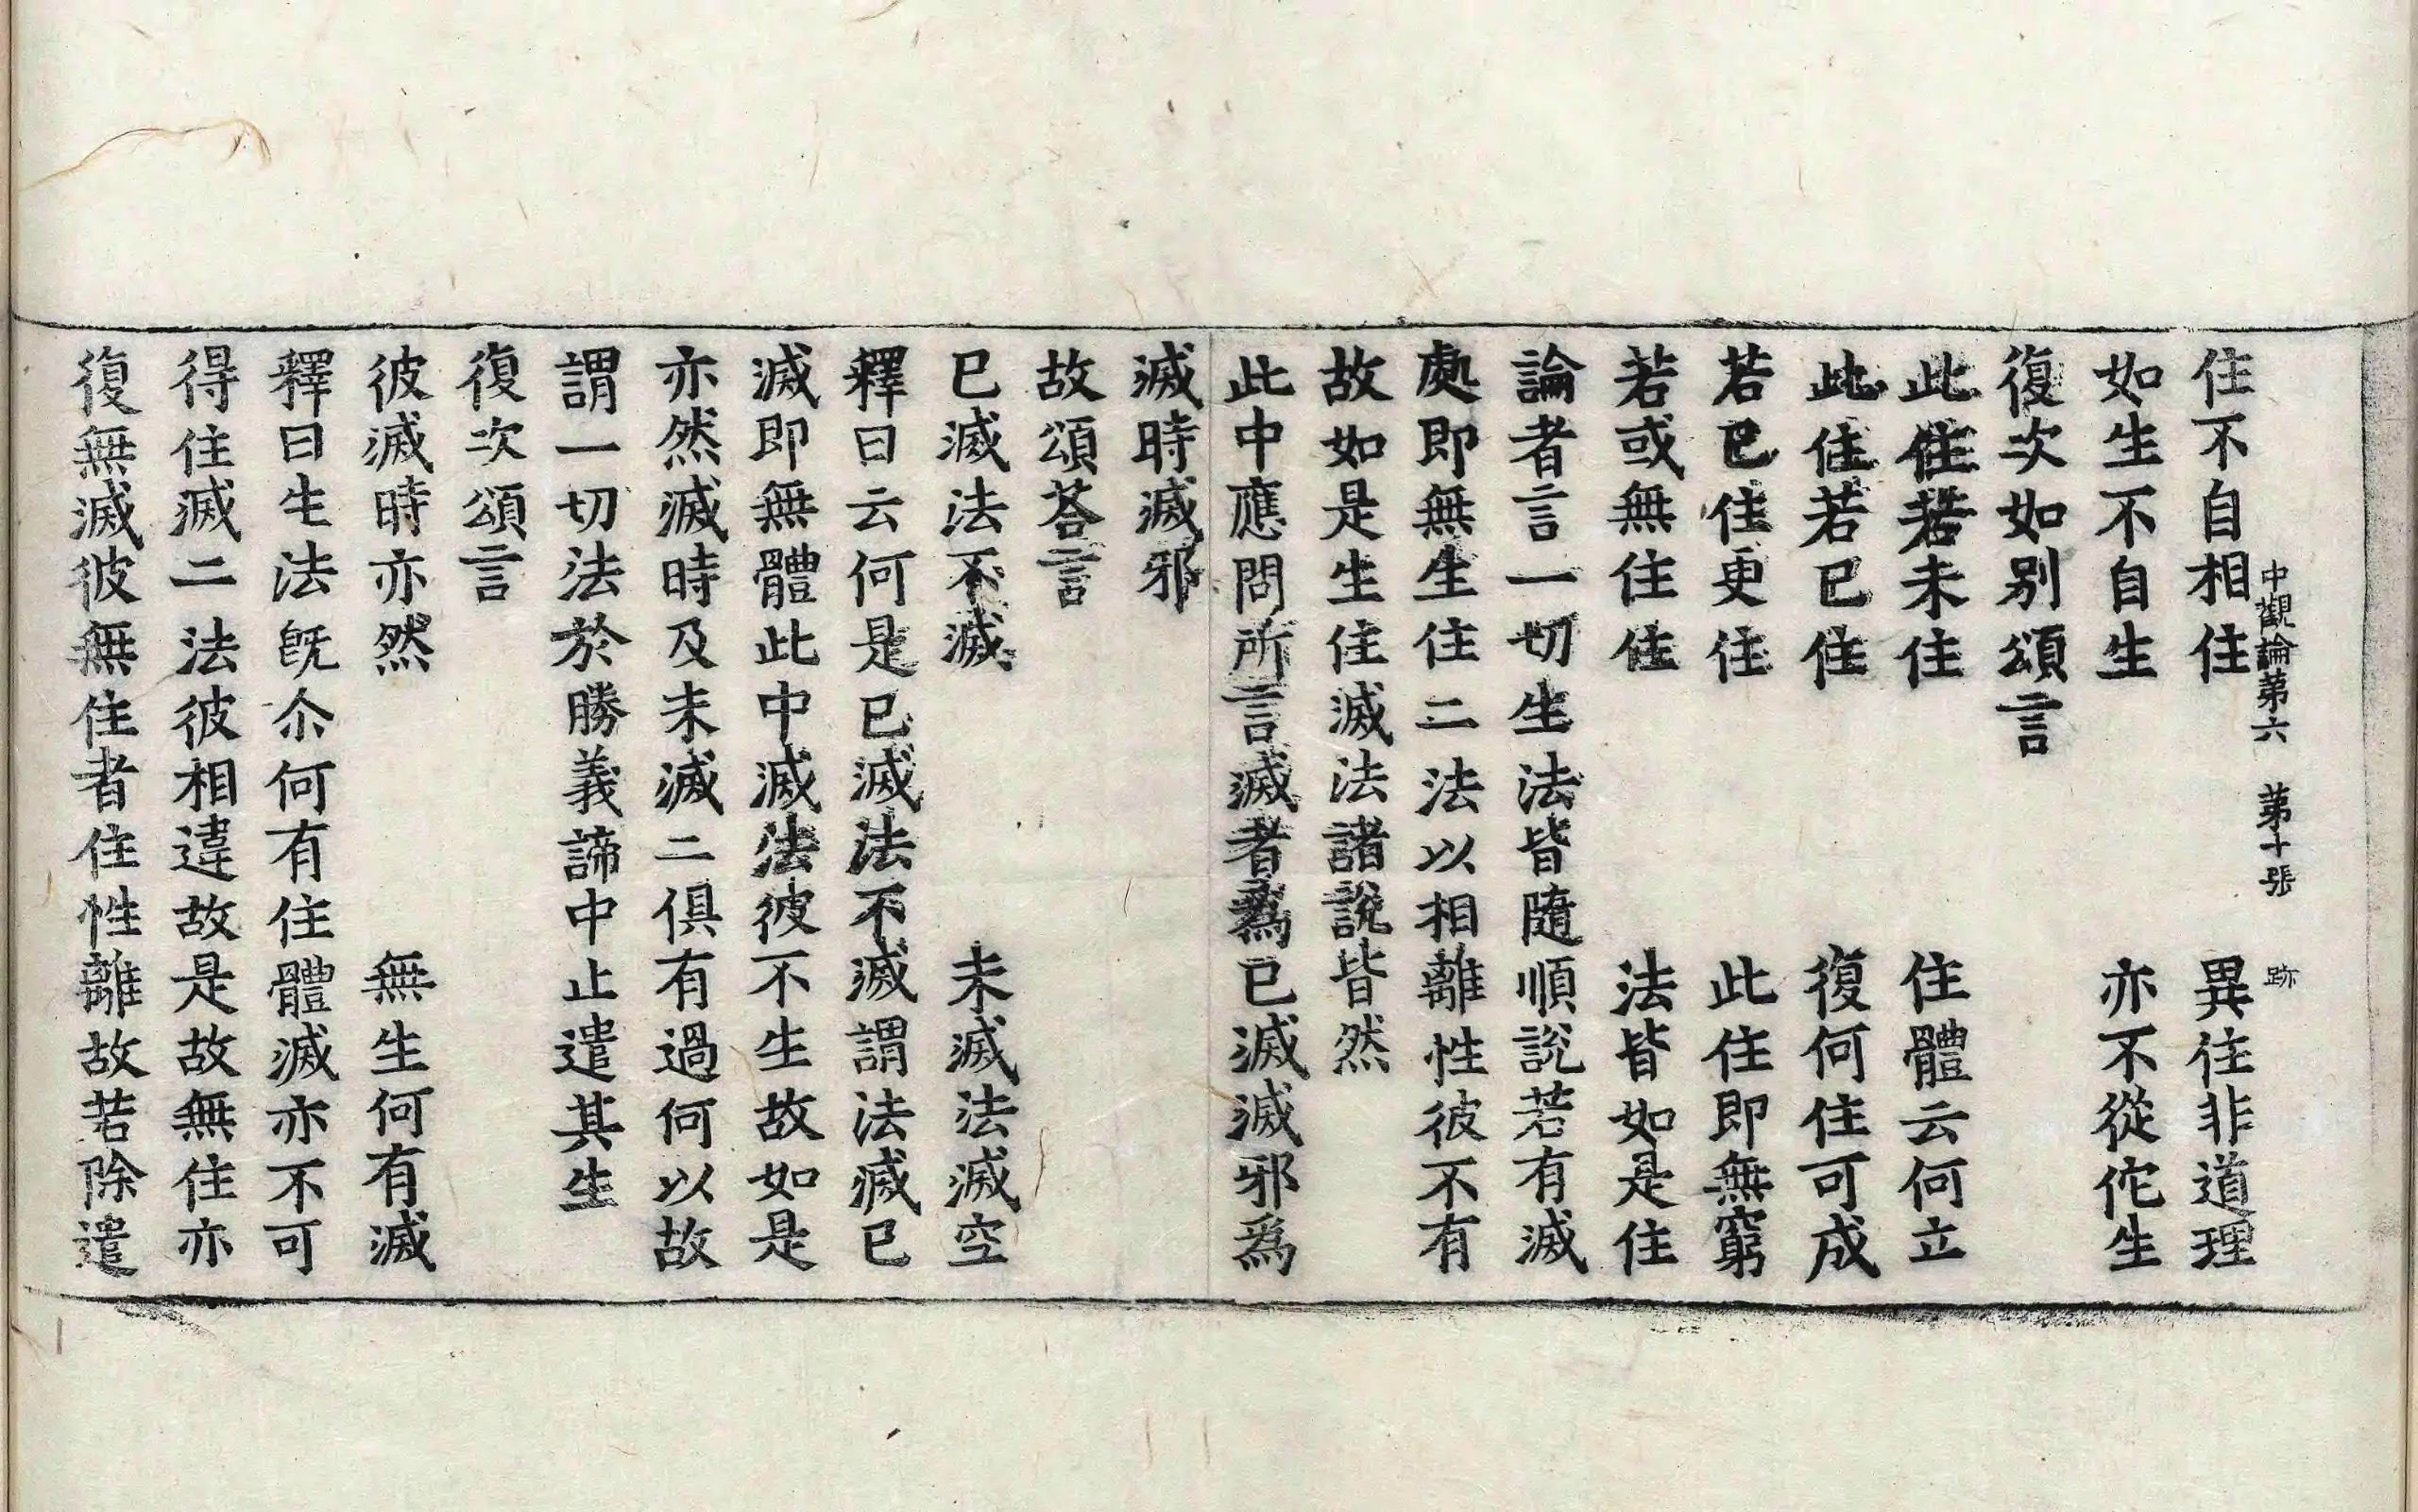 中觀論第六　第十張　跡
住不自相住　異住非道理
如生不自生　亦不從佗生
復次如別頌言
此住若未住　住體云何立
此住若已住　復何住可成
若已住更住　此住即無窮
若或無住住　法皆如是住
論者言一切生法皆隨順說若有滅
處即無生住二法以相離性彼不有
故如是生住滅法諸說皆然
此中應問所言滅者爲已滅滅邪爲
滅時滅邪
故頌荅言
已滅法不滅　未滅法滅空
釋曰云何是已滅法不滅謂法滅已
滅即無體此中滅法彼不生故如是
亦然滅時及未滅二俱有過何以故
謂一切法於勝義諦中止遣其生
復次頌言
彼滅時亦然　無生何有滅
釋曰生法旣尒何有住體滅亦不可
得住滅二法彼相違故是故無住亦
復無滅彼無住者住性離故若除遣